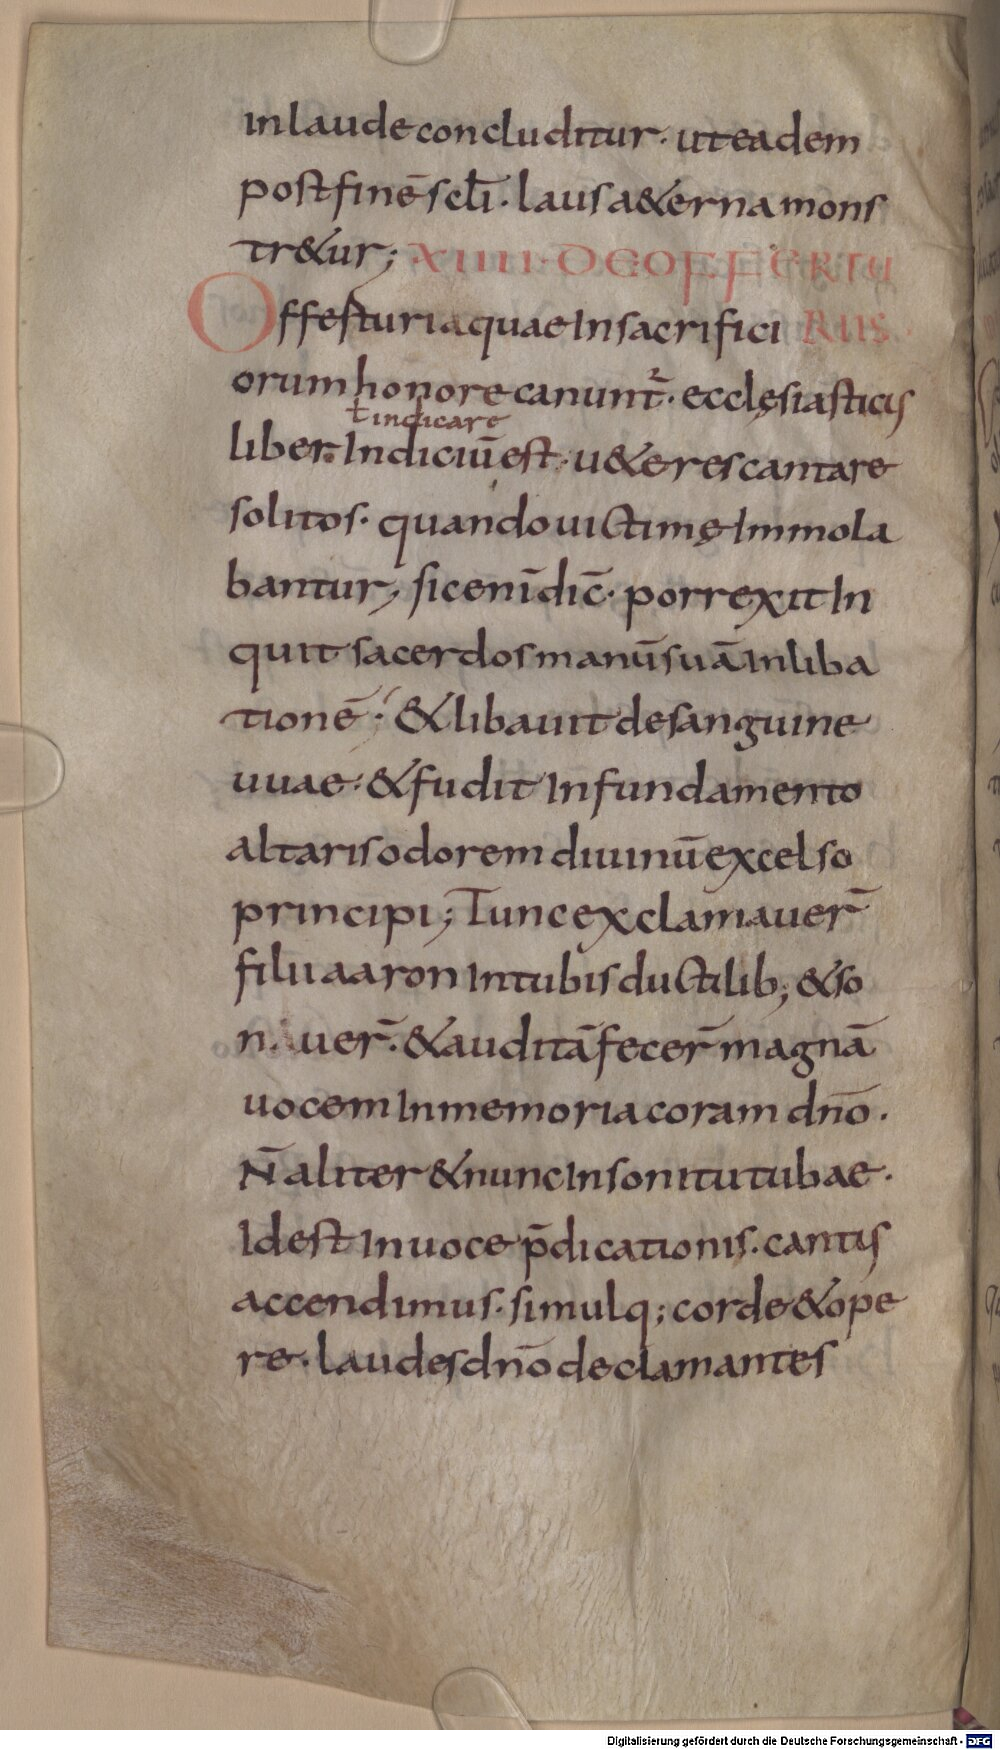 in laude concluditur · ut eadem
post finē sc̄li · laus a&erna mons
tr&ur; XIIII · DE OFFERTU
Offesturia quae In sacrifici RIIS
orum honore canunt̄ · ecclęsiasticis
ł indicare
liber Indiciū est · u&eres cantare
solitos · quando uictimę Immola
bantur, sic enī dic̄ · porrexit In
quit sacerdos manū suā In liba
tionē · & libauit de sanguine
uuae · & fudit In fundamento
altaris odorem diuinū excelso
principi; Tunc exclamauer̄
filii aaron In tubis ductilib; & so
n uer̄ · & auditā fecer̄ magnā
uocem In memoria coram dn̄o ·
N̄ aliter & nunc In sonitu tubae ·
Id est In uoce p̄dicationis · cantis
accendimus · simulq; corde & ope
re · laudes dn̄o declamantes
Digitalisierung gefördert durch die Deutsche Forschungsgemeinschaft - DFG